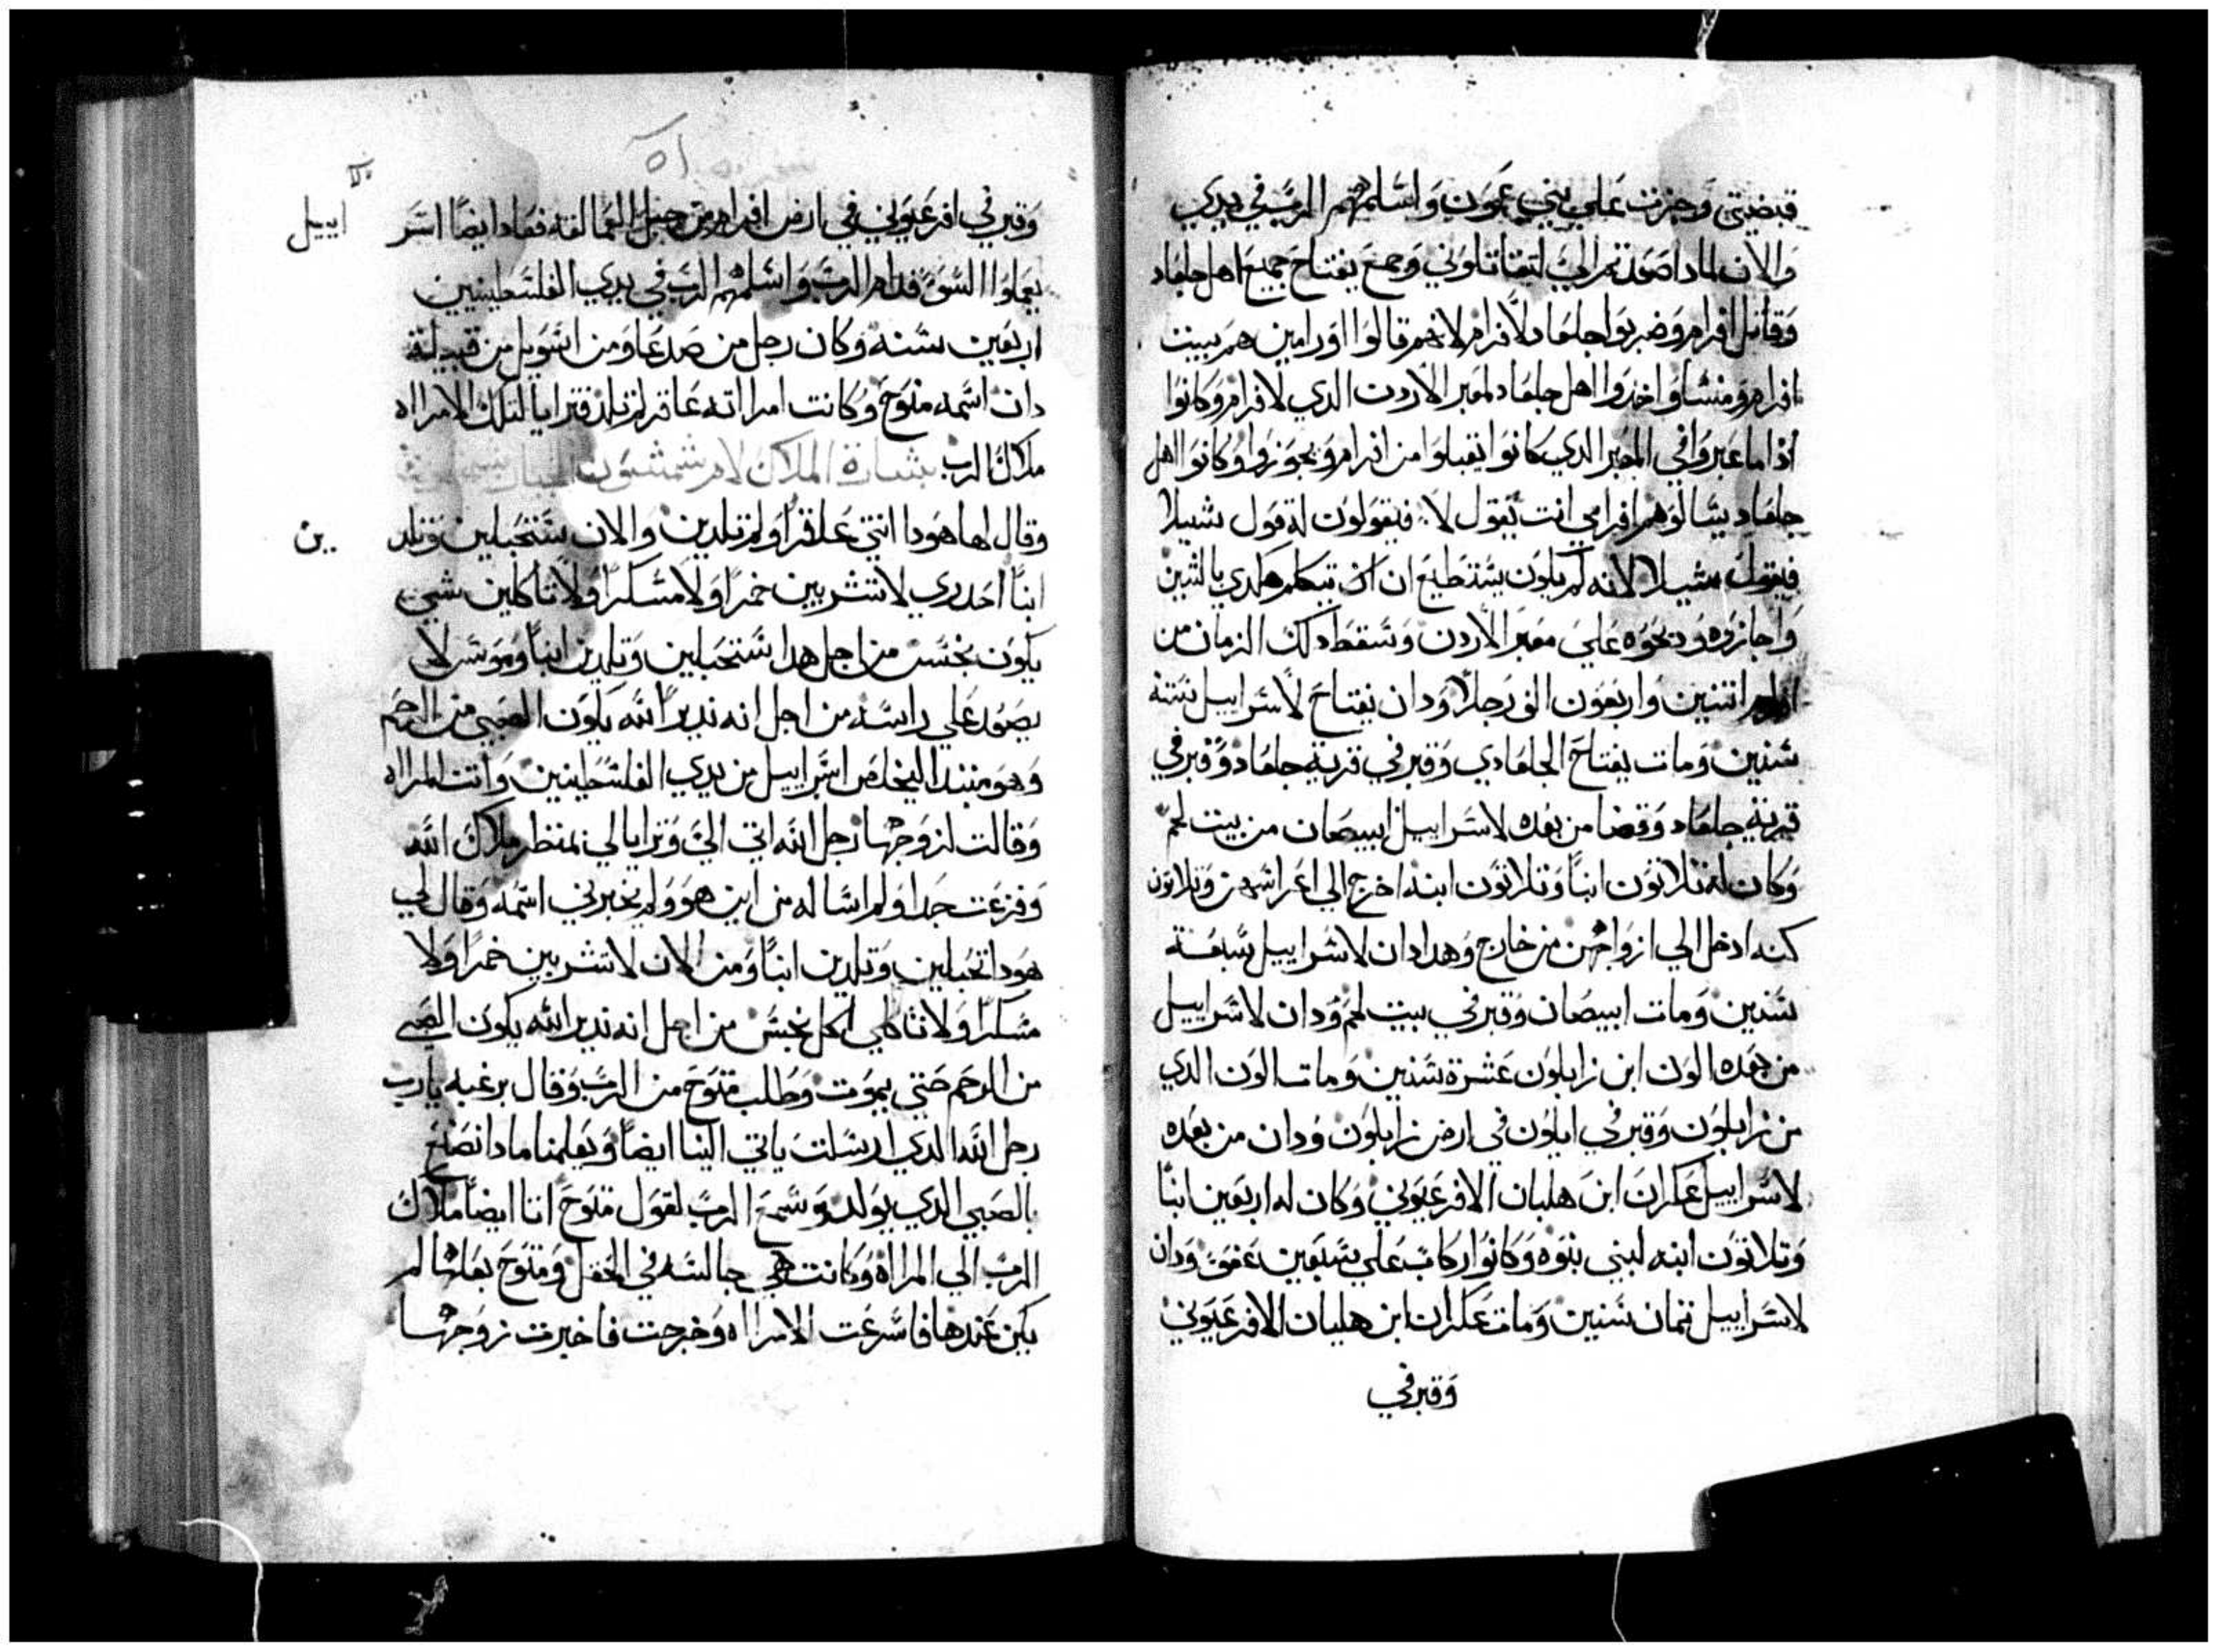 قبضيتي وجزت علي بني عمون واسلمهم الرب في يدي
والان لمادا صعدتم الي لتقاتلوني وجمع يفتاح جميع اهل جلعاد
وقاتل افرام وضربوا جلعاد لافرام لانهم قالوا اورامين هم ببيت
افرام ومنشا واخدوا اهل جلعاد لمعبر الاردن الدي لافرام وكانوا
ادا ما عبروا في المعبر الدي كانوا يقبلوا من افرام ويجوزوا وكانوا اهل
جلعاد يسالوهم افرامي انت يقول لا فيقولون له قول شبيلا
فيقول سبيلا لانه لم يكون يستطيع ان يتكلم هكدي بالشين
واجازوه ودبحوه علي معبر الاردن وسقط دلك الزمان من
افرام اتنين واربعون الف رجلا ودان يفتاح لاسراييل ستة
سنين ومات يفتاح الجلعادي وقبر في قرية جلعاد وقبر في
قرية جلعاد وقضا من بعده لاسراييل ابيصان من بيت لحم
وكان له تلاتون ابنا وتلاتون ابنه اخرج الي اعراسهن وتلاتون
كنه ادخل الي ازواجهن من خارج وهدا دان لاسراييل سبعة
سنين ومات ابيصان وقبر في بيت لحم ودان لاسراييل
من بعده الون ابن زابلون عشرة سنين ومات الون الدي
من زابلون وقبر في ايلون في ارض زابلون ودان من بعده
لاسراييل عكران ابن هلبان الافرعيوني وكان له اربعين ابنا
وتلاتون ابنه لبني بنوه وكانوا ركاب علي سبعين عفو ودان
لاسراييل تمان سنين ومات عكران ابن هلبان الافرعيوني
وقبر في
٥١
وقبر في افرعيوني في ارض افرام من جبل العمالقه فعاد ايضا اسر
اييل
يعملوا السو قدام الرب واسلمهم الرب في يدي الفلسطينيين
اربعين سنه وكان رجل من صدعا ومن اشويل من قبيلة
دان اسمه منوح وكانت امراته عاقر لم تلد فترايا لتلك الامراه
ملاك الرب بشارة الملاك لام شمشون
وقال لها هودا انتي عاقرا ولم تلدين والان ستحبلين وتلد
ين
ابنا احدري لا تشربين خمرا ولا مسكرا ولا تاكلين شي
يكون نجس من اجل هدا ستحبلين وتلدين ابنا وموس لا
يصعد علي راسه من اجل انه نديرا لله يكون الصبي من الرحم
وهو مبتدا ليخلص اسراييل من يدي الفلسطينين واتت المراه
وقالت لزوجها رجل الله اتي الي وترايا لي بمنظر ملاك الله
وفزعت جدا ولم اساله من اين هو ولم يخبرني اسمه وقال لي
هودا تحبلين وتلدين ابنا ومن الان لا تشربين خمرا ولا
مسكرا ولا تاكلي اكل نجس من اجل انه ندير الله يكون الصبي
من الرحم حتي يموت وطلب منوح من الرب وقال برغبه يا رب
رجل الله الدي ارسلت ياتي الينا ايضا ويعلمنا مادا نصنع
بالصبي الدي يولد وسمع الرب لقول منوح اتا ايضا ملاك
الرب الي المراه وكانت هي جالسه في الحقل ومنوح بعلها لم
يكن عندها فاسرعت الامراه وخرجت فاخبرت زوجها